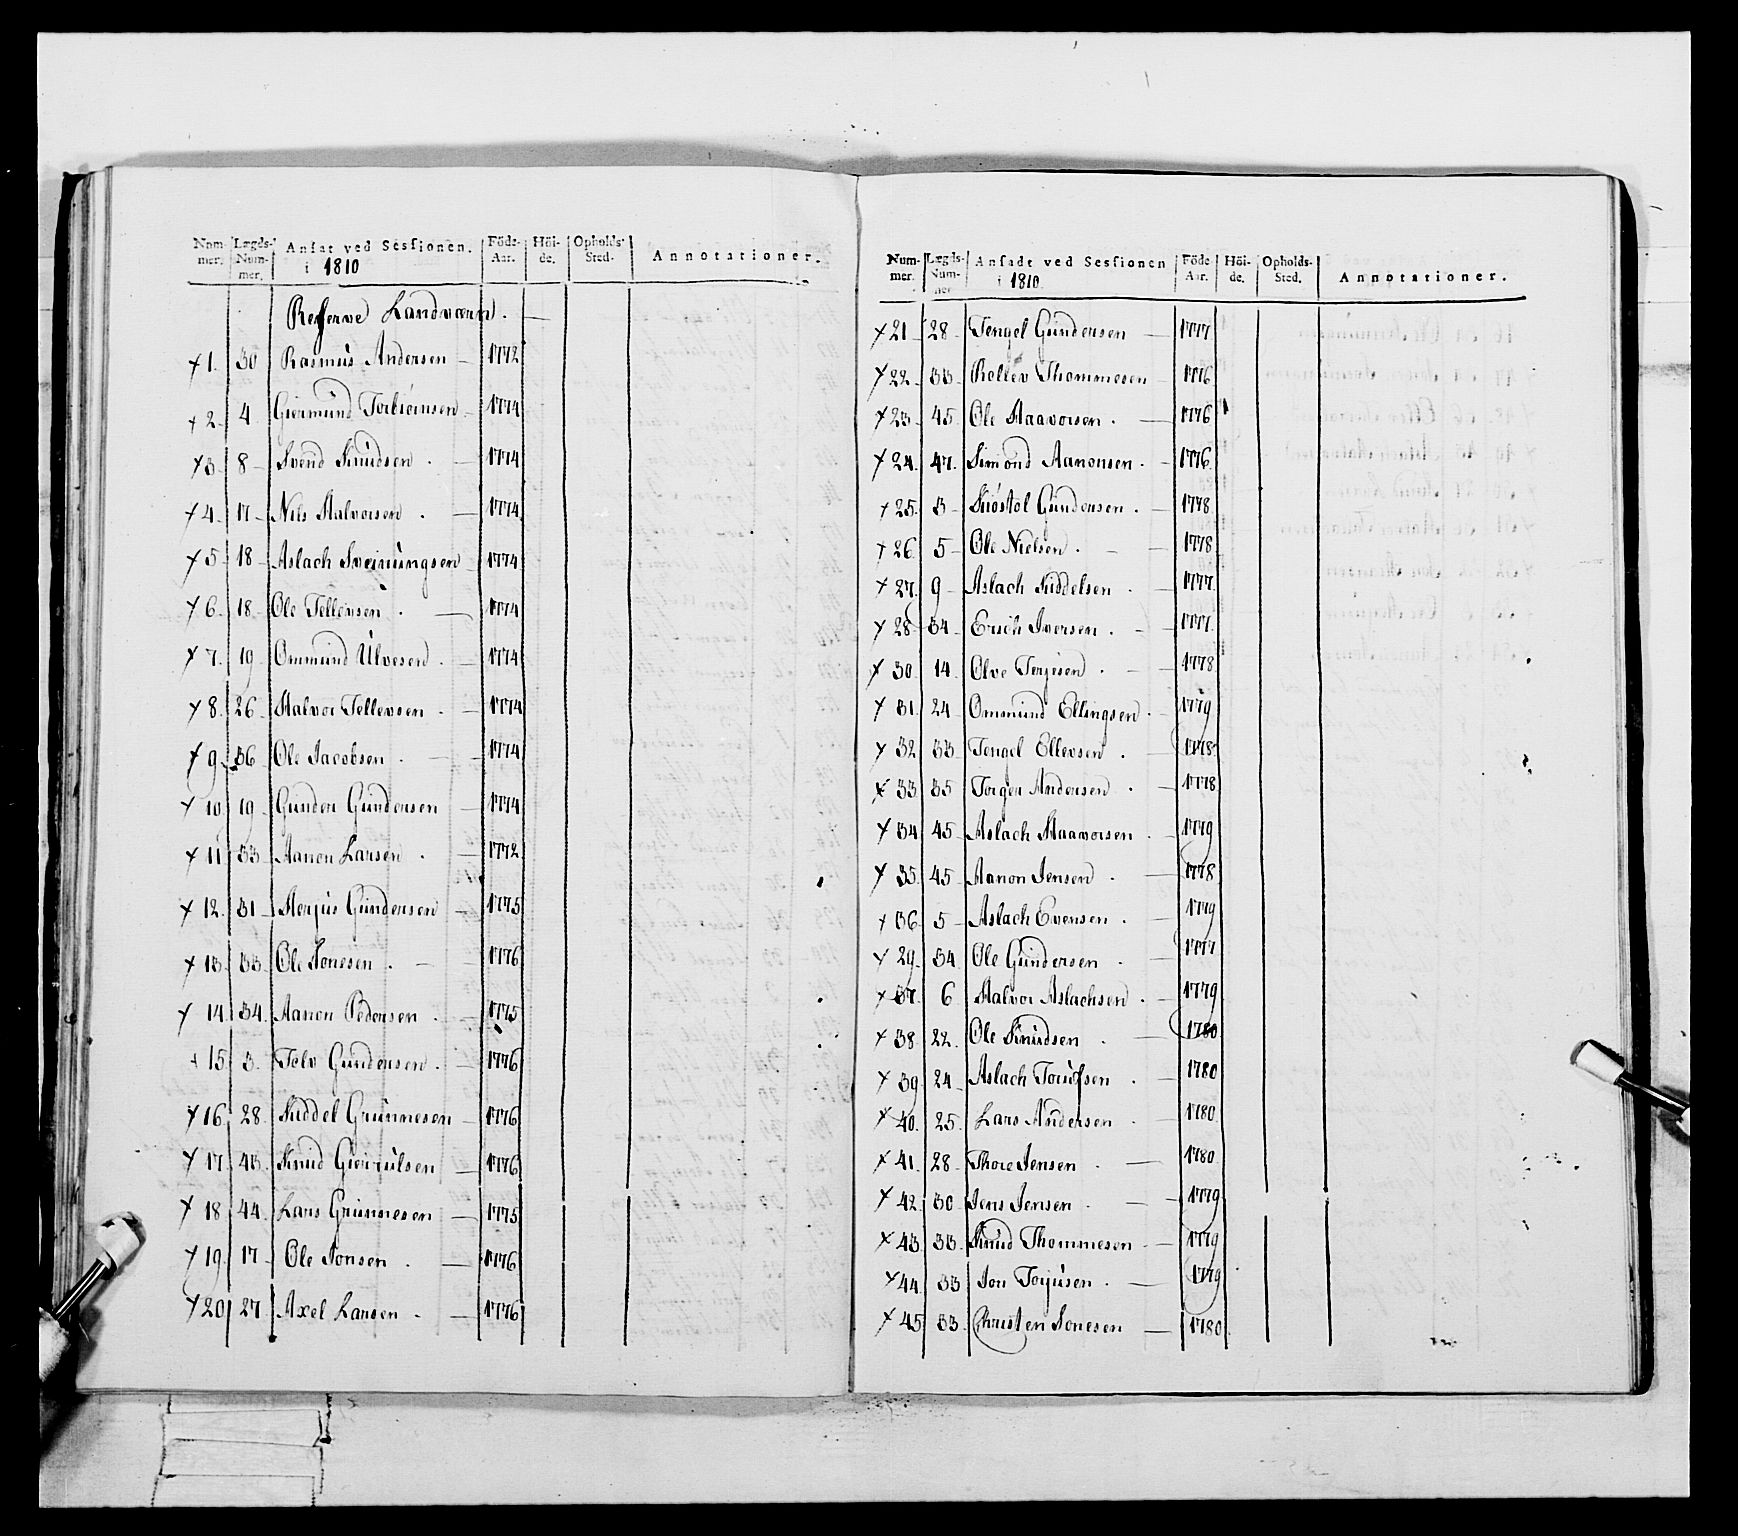 Num- Lægds- Ansat ved Sessionen. Föde- Höi- Opholds- Annotationer.
mer. Num- i 1810 Aar. de. Sted.
mer.
Reserve Landværn. —
+ 1. 30 Rasmus Andersen — 1772
+ 2. 4 Giermund Torbiörnsen 1774
+ 3 8 — Svend Knudsen . — 1774
+ 4. 17 — Nils Halvorsen . — 1774
+ 5 18 — Aslach Sveinungsen — 1774
+ 6. 18. Ole Tellevsen . — 1774
+ 7. 19 Ommund Ulvesen . — 1774
+ 8. 26 Halvor Tellevsen . — 1774
+ 9. 36 Ole Jacobsen . — 1774
+ 10 19 Gunder Gundersen — 1774
+ 11 33 Aanon Larsen . — 1772
+ 12. 31 — Herjus Gundersen — 1775
+ 13 33 Ole Jonesen . — 1776
+ 14. 34. Aanon Pedersen . — 1775
+ 15 3. Telv Gundersen . — 1776
+ 16. 28. Kiddel Grunnesen — 1776
+ 17. 43. Knud Gierulsen — 1776
+ 18 44. Lars Grunnesen — 1775
+ 19. 17 — Ole Jonsen . — 1776
+ 20 27. Axel Larsen . — 1776
Num- Lægds- Ansadt ved Sessionen Föde Höi- Opholds- Annotationer.
mer. Num- i 1810. Aar. de. Sted.
mer
+ 21 28 — Tengel Gundersen — 1777
+ 22. 33 — Rollev Thommesen 1776
+ 23 45. Ole Haavorsen . — 1776
+ 24. 47. Simond Aanonsen . — 1776.
+ 25. 3 — Kiöstol Gundersen . — 1778
+ 26 5 — Ole Nielsen . — 1778
+ 27. 9 — Aslach Kiddelsen . — 1777.
+ 28 34 — Erich Iversen . — 1777.
+ 30. 14. Olve Terjesen . — 1778
+ 31. 24 Ommund Ellingsen . 1779
+ 32 33 Tengel Ellevsen . — 1778
+ 33 35 Torger Andersen . — 1778
+ 34 45 — Aslach Haavorsen . — 1779
+ 35. 45 — Aanon Jensen . — 1778
+ 36 5 — Aslach Evensen . — 1779
+ 29. 34 Ole Gundersen . — 1777
+ 37. 6 Halvor Aslachsen . — 1779
+ 38 22. Ole Knudsen . — 1780
+ 39 24 — Aslach Torüfsen . — 1780
+ 40. 25. Lars Andersen . — 1780
+ 41. 28 — Thore Jensen . — 1780
+ 42. 30 Jens Jensen . — 1779
+ 43. 33. Knud Thommesen — 1779
+ 44. 33 Jon Torjusen . — 1779
+ 45 33. Christen Jonesen — 1780